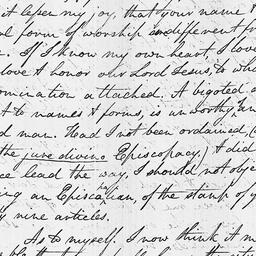 it lessen my joy, that your name &
form of worship is different fr
If I know my own heart, I love
love & honor our Lord Jesus, to who
omination attached. A bigoted a
t to names & forms, is unworthy an
d man. Had I not been ordained, (
the jure divino Episcopacy.) I did
ce lead the way, I should not obje
ing an Episcopalian, of the stamp of y
y nine articles.
As to myself. I now think it m